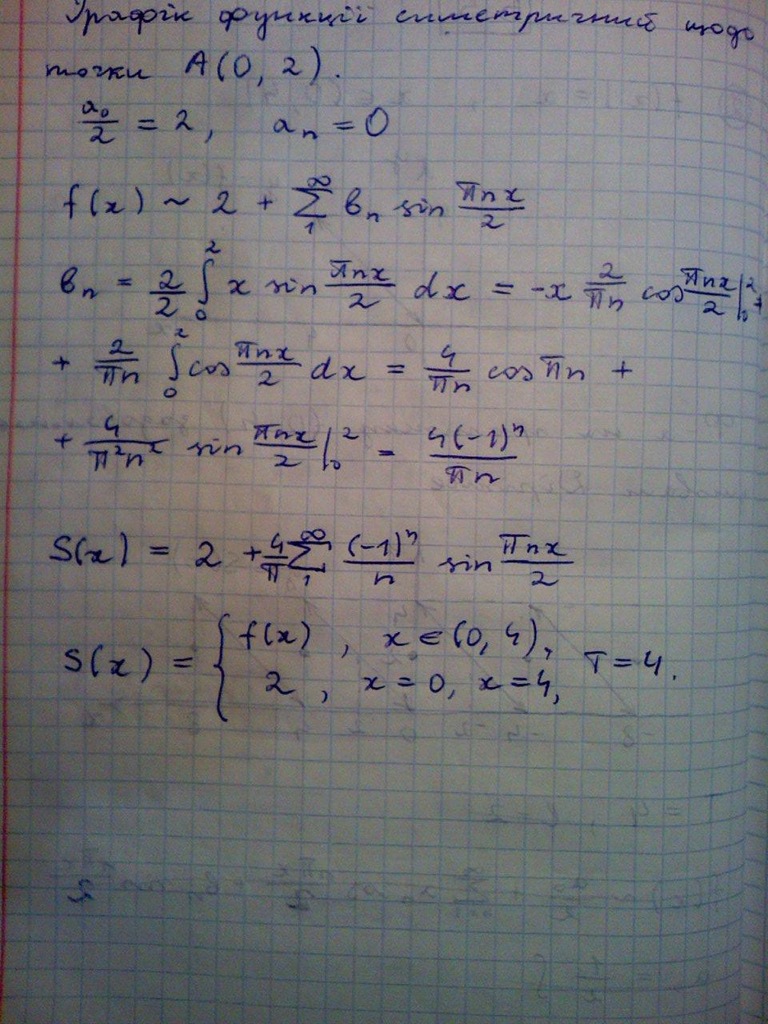 Графік функції симетричний щодо
точки A(0, 2).
a₀/2 = 2, aₙ = 0
f(x) ~ 2 + ∑₁^∞ вₙ sin πnx/2
вₙ = 2/2 ∫₀² x sin πnx/2 dx = -x 2/πn cos πnx/2 |₀² +
+ 2/πn ∫₀² cos πnx/2 dx = 4/πn cos πn +
+ 4/π²n² sin πnx/2 |₀² = 4(-1)ⁿ/πn
S(x) = 2 + 4/π ∑₁^∞ (-1)ⁿ/n sin πnx/2
S(x) = { f(x), x ∈ (0, 4),
2, x = 0, x = 4, T = 4.